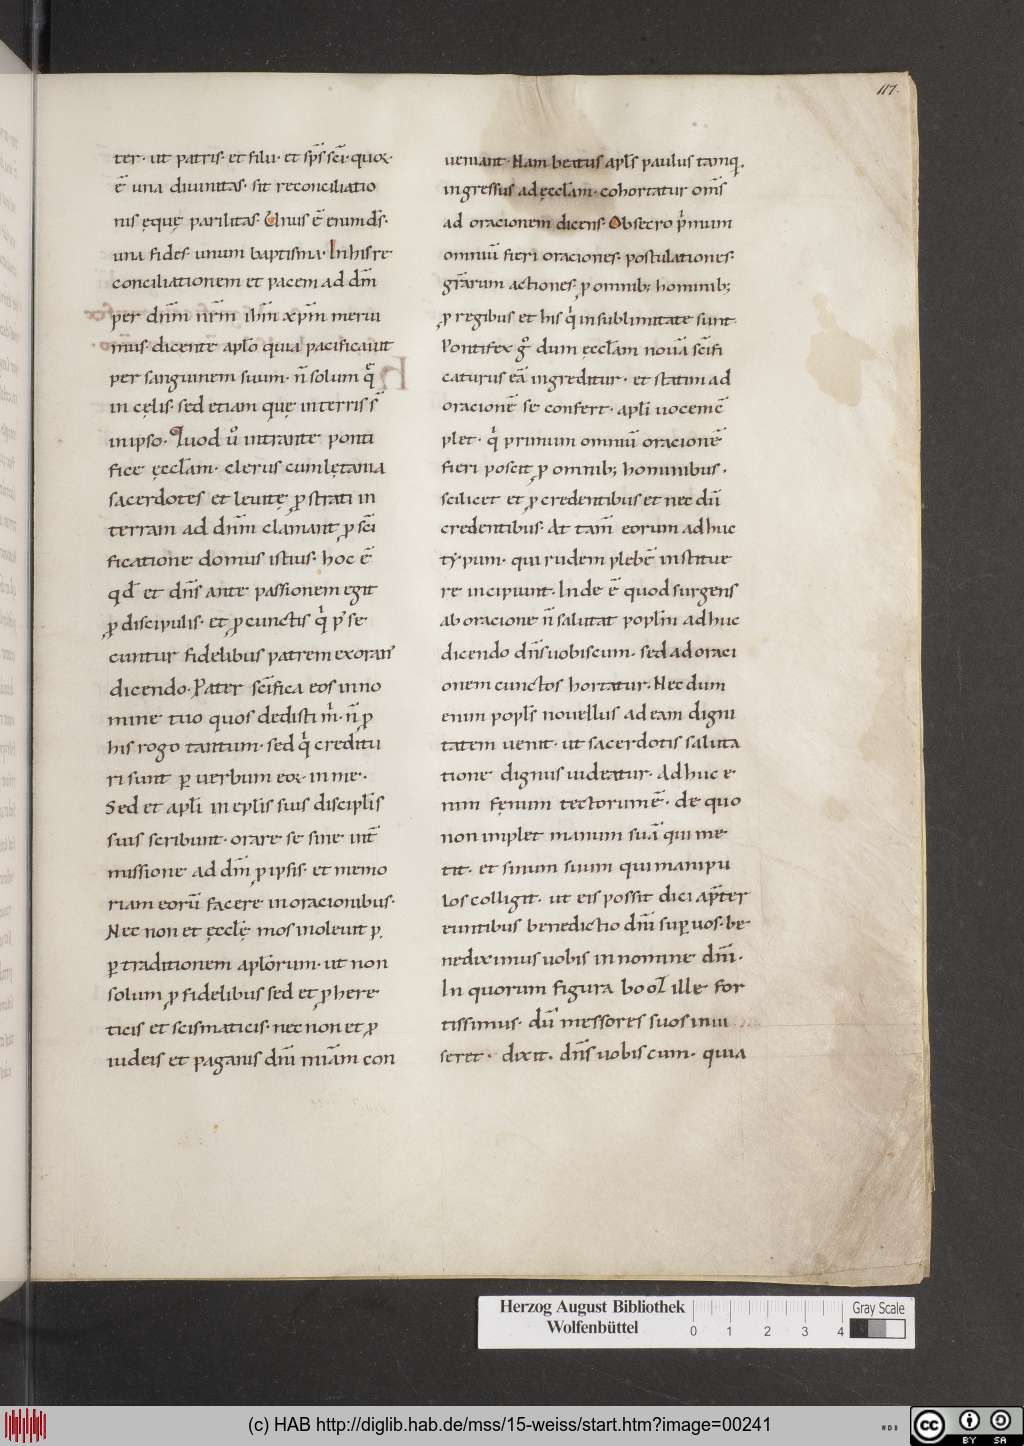 117.
ter· ut patris· et filii· et sp̄s sc̄i· quoꝝ·
ē una diuinitas· sit reconciliatio
nis ęquę parilitas· Unus ē enim ds̄·
una fides· unum baptisma· In his re
conciliationem et pacem ad dn̄m
per dn̄m nr̄m ih̄m xp̄m merui
mus· dicente aplō quia pacificauit
per sanguinem suum· n̄ solum q̄
in cęlis· sed etiam quę in terris s̄
in ipso· Quod ů intrante ponti
fice ęccłam· clerus cum lętania
sacerdotes et leuitę ꝓstrati in
terram ad dn̄m clamant ꝓ sc̄i
ficatione domus istius· hoc ē
qd̄ et dn̄s ante passionem egit
ꝓ discipulis· et ꝓ cunctis qͥ pͥ se
cuntur fidelibus patrem exorans
dicendo· Pater sc̄ifica eos in no
mine tuo quos dedisti mͥ· n̄ ꝓ
his rogo tantum· sed qͥ creditu
ri sunt ꝑ uerbum eoꝝ· in me·
Sed et apłi in epłis suis discipłis
suis scribunt· orare se sine int̄
missione ad dn̄m ꝓ ipsis· et memo
riam eorū facere in oracionibus·
Nec non et ęccłę mos inoleuit ꝑ·
ꝑ traditionem apłorum· ut non
solum ꝓ fidelibus sed et ꝓ here
ticis et scismaticis· nec non et ꝓ
iudeis et paganis dn̄i miām con
ueniant· Nam beatus apłs paulus tamq̄·
ingressus ad ęccłam· cohortatur om̄s
ad oracionem dicens· Obsecro pͥmum
omniū fieri oraciones· postulationes·
gr̄arum actiones· ꝓ omnib; hominib;
ꝓ regibus et his qͥ in sublimitate sunt·
Pontifex g̊ dum ęccłam nouā sc̄ifi
caturus eā ingreditur· et statim ad
oracionē se confert· apłi uocem ē
plet· qͥ primum omniū oracionē
fieri poscit ꝓ omnib; hominibus·
scilicet et ꝓ credentibus et nec dū
credentibus· At tam̄ eorum adhuc
typum· qui rudem plebē institue
re incipiunt· Inde ē quod surgens
ab oracione n̄ salutat popłm adhuc
dicendo dn̄s uobiscum· sed ad oraci
onem cunctos hortatur· Nec dum
enim popłs nouellus ad eam digni
tatem uenit· ut sacerdotis saluta
tione dignus uideatur· Adhuc e
nim fęnum tectorum ē· de quo
non implet manum suā qui me
tit· et sinum suum qui manipu
los colligit· ut eis possit dici apr̄ter
euntibus benedictio dn̄i suꝑ uos· be
nediximus uobis in nomine dn̄i·
In quorum figura booz ille for
tissimus· dū messores suos inui
seret· dixit· dn̄s uobiscum· quia
Herzog August Bibliothek
Wolfenbüttel
0 1 2 3 4
Gray Scale
(c) HAB http://diglib.hab.de/mss/15-weiss/start.htm?image=00241
cc BY SA